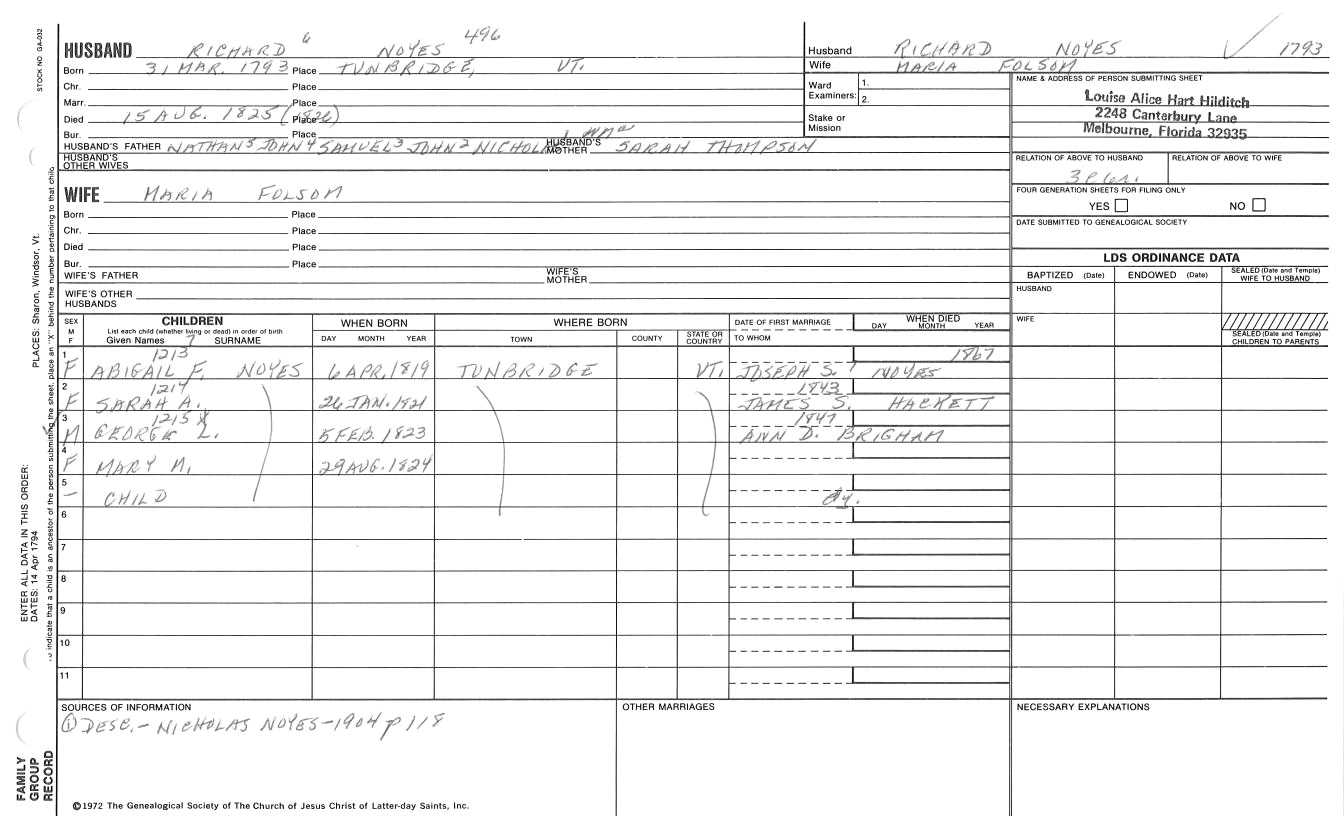 STOCK NO. GA-032
HUSBAND RICHARD 6 NOYES 496
Born 31 MAR. 1793 Place TUNBRIDGE, VT.
Chr. Place
Marr. Place
Died 15 AUG. 1825 (1826) Place
Bur. Place
HUSBAND'S FATHER NATHAN 5 JOHN 4 SAMUEL 3 JOHN 2 NICHOLAS 1 HUSBAND'S MOTHER SARAH THOMPSON
HUSBAND'S OTHER WIVES
Husband RICHARD NOYES 1793
Wife MARIA FOLSOM
Ward 1.
Examiners: 2.
Stake or Mission
NAME & ADDRESS OF PERSON SUBMITTING SHEET
Louise Alice Hart Hilditch
2248 Canterbury Lane
Melbourne, Florida 32935
RELATION OF ABOVE TO HUSBAND RELATION OF ABOVE TO WIFE
FOUR GENERATION SHEETS FOR FILING ONLY
YES NO
DATE SUBMITTED TO GENEALOGICAL SOCIETY
WIFE MARIA FOLSOM
Born Place
Chr. Place
Died Place
Bur. Place
WIFE'S FATHER WIFE'S MOTHER
WIFE'S OTHER HUSBANDS
LDS ORDINANCE DATA
BAPTIZED (Date) ENDOWED (Date) SEALED (Date and Temple) WIFE TO HUSBAND
HUSBAND
WIFE
SEALED (Date and Temple) CHILDREN TO PARENTS
SEX M F
CHILDREN
List each child (whether living or dead) in order of birth
Given Names 7 SURNAME
WHEN BORN
DAY MONTH YEAR
WHERE BORN
TOWN COUNTY STATE OR COUNTRY
DATE OF FIRST MARRIAGE
TO WHOM
WHEN DIED
DAY MONTH YEAR
1 1213 1867
F ABIGAIL F. NOYES 6 APR, 1819 TUNBRIDGE VT. JOSEPH S. 7 NOYES
2 1214 1843
F SARAH A. 26 JAN. 1821 JAMES S. HACKETT
3 1215 X 1847
M GEORGE L. 5 FEB. 1823 ANN D. BRIGHAM
4
F MARY M. 29 AUG. 1824
5
– CHILD dy.
6
7
8
9
10
11
SOURCES OF INFORMATION
① DESC. - NICHOLAS NOYES - 1904 p 118
OTHER MARRIAGES
NECESSARY EXPLANATIONS
©1972 The Genealogical Society of The Church of Jesus Christ of Latter-day Saints, Inc.
FAMILY GROUP RECORD
ENTER ALL DATA IN THIS ORDER:
DATES: 14 Apr 1794
PLACES: Sharon, Windsor, Vt.
indicate that a child is an ancestor of the person submitting the sheet, place an "X" behind the number pertaining to that child.